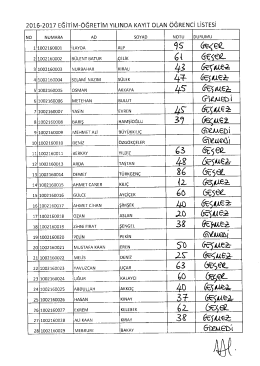 2016-2017 EĞİTİM-ÖĞRETİM YILINDA KAYIT OLAN ÖĞRENCİ LİSTESİ
NO NUMARA AD SOYAD NOTU DURUMU
1 1002160001 ALP 95 GEÇER
2 1002160002 BÜLENT BATUR ÇELİK 61 GEÇER
3 1002160003 NURBAHAR KIRAÇ 43 GEÇMEZ
4 1002160004 SELAMİ NAZIM 47 GEÇMEZ
5 1002160005 OSMAN AKKAYA 45 GEÇMEZ
6 1002160006 METEHAN BULUT GİRMEDİ
7 1002160007 YASİN EVREN 45 GEÇMEZ
8 1002160008 BARIŞ 39 GEÇMEZ
9 1002160009 MEHMET ALİ GİRMEDİ
10 1002160010 DENİZ GİRMEDİ
11 1002160011 BERKAY YILDIZ 63 GEÇER
12 1002160013 ARDA TAŞTAN 48 GEÇMEZ
13 1002160014 DEMET TÜRKGENÇ 86 GEÇER
14 1002160015 AHMET CANER KILIÇ 12 GEÇMEZ
15 1002160016 60 GEÇER
16 1002160017 AHMET CİHAN ŞİMŞEK 40 GEÇMEZ
17 1002160018 OZAN ASLAN 20 GEÇMEZ
18 1002160019 ŞENGEL 38 GEÇMEZ
19 1002160020 PELİN PEKİN GİRMEDİ
20 1002160021 MUSTAFA KAAN EREN 50 GEÇMEZ
21 1002160022 MELİS DENİZ 25 GEÇMEZ
22 1002160023 YAVUZCAN UÇAR 63 GEÇER
23 1002160024 UĞUR KALAYCI 60 GEÇER
24 1002160025 ABDULLAH AKKOÇ 40 GEÇMEZ
25 1002160026 HASAN KINAY 37 GEÇMEZ
26 1002160027 EKREM KELEBEK 62 GEÇER
27 1002160028 ALİ KAAN KIRAY 38 GEÇMEZ
28 1002160029 MERYEM BAKAY GİRMEDİ